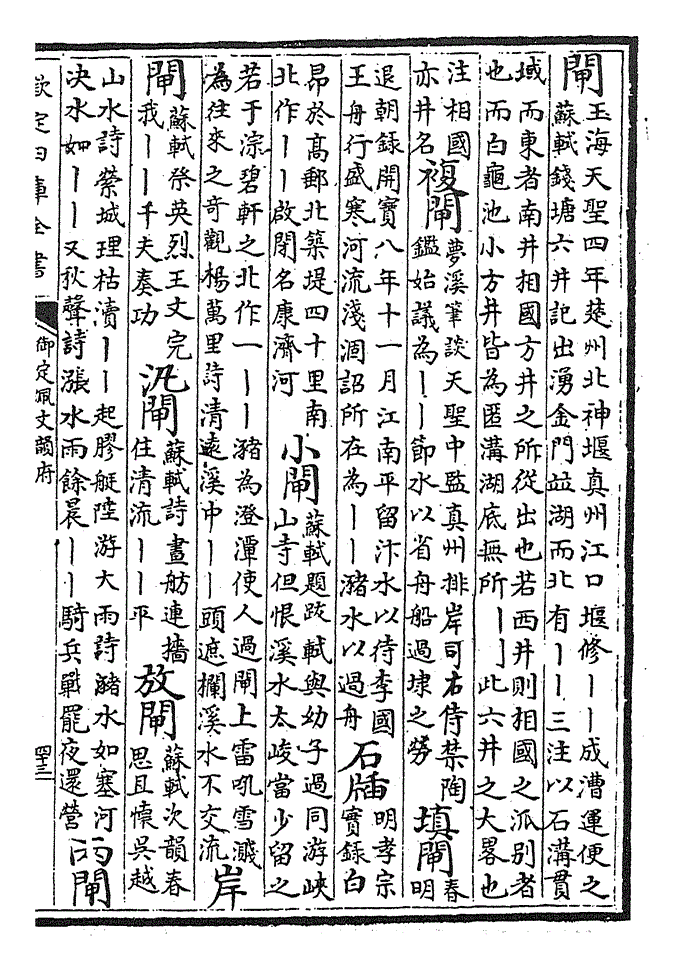 閘玉海天聖四年楚州北神堰真州江口堰修丨丨成漕運便之
蘇軾錢塘六井記出湧金門並湖而北有丨丨三注以石溝貫
城而東者南井相國方井之所從出也若西井則相國之派別者
也而白龜池小方井皆為匿溝湖底無所丨丨此六井之大畧也
注相國
亦井名
複閘夢溪筆談天聖中監真州排岸司右侍禁陶
鑑始議為丨丨節水以省舟船過埭之勞
填閘春
明
退朝錄開寶八年十一月江南平留汴水以待李國
王舟行盛寒河流淺涸詔所在為丨丨瀦水以過舟
石牐明孝宗
實錄白
昂於高郵北築堤四十里南
北作丨丨啟閉名康濟河
小閘蘇軾題跋軾與幼子過同游峽
山寺但恨溪水太峻當少留之
若于淙碧軒之北作一丨丨瀦為澄潭使人過閘上雷吼雪濺
為往來之奇觀楊萬里詩清遠溪中丨丨頭遮攔溪水不交流
岸
閘蘇軾祭英烈王文完
我丨丨千夫奏功
汎閘蘇軾詩畫舫連檣
住清流丨丨平
放閘蘇軾次韻春
思且慄吳越
山水詩縈城理枯瀆丨丨起膠艇陸游大雨詩瀦水如塞河
決水如丨丨又秋聲詩漲水雨餘晨丨丨騎兵戰罷夜還營
兩閘
欽定四庫全書
御定佩文韻府
四三